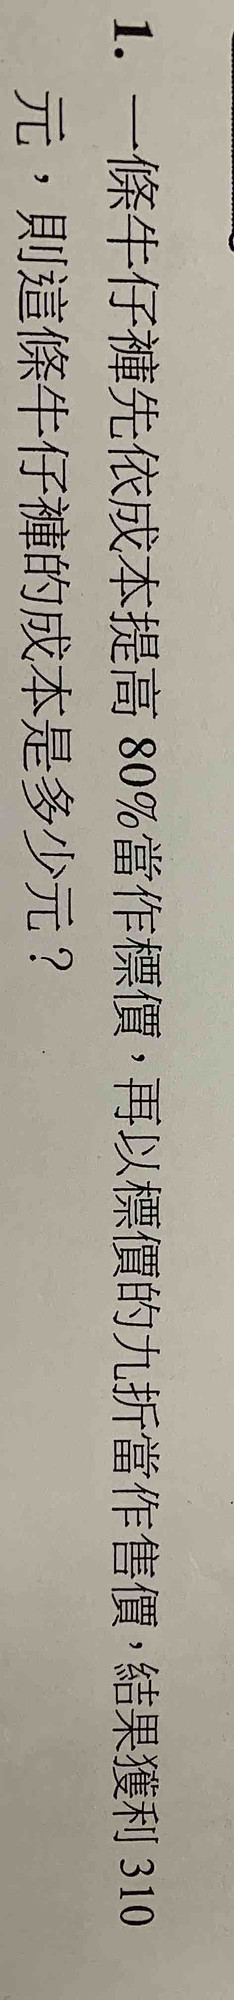 1. 一條牛仔褲先依成本提高 80%當作標價，再以標價的九折當作售價，結果獲利 310
元，則這條牛仔褲的成本是多少元？